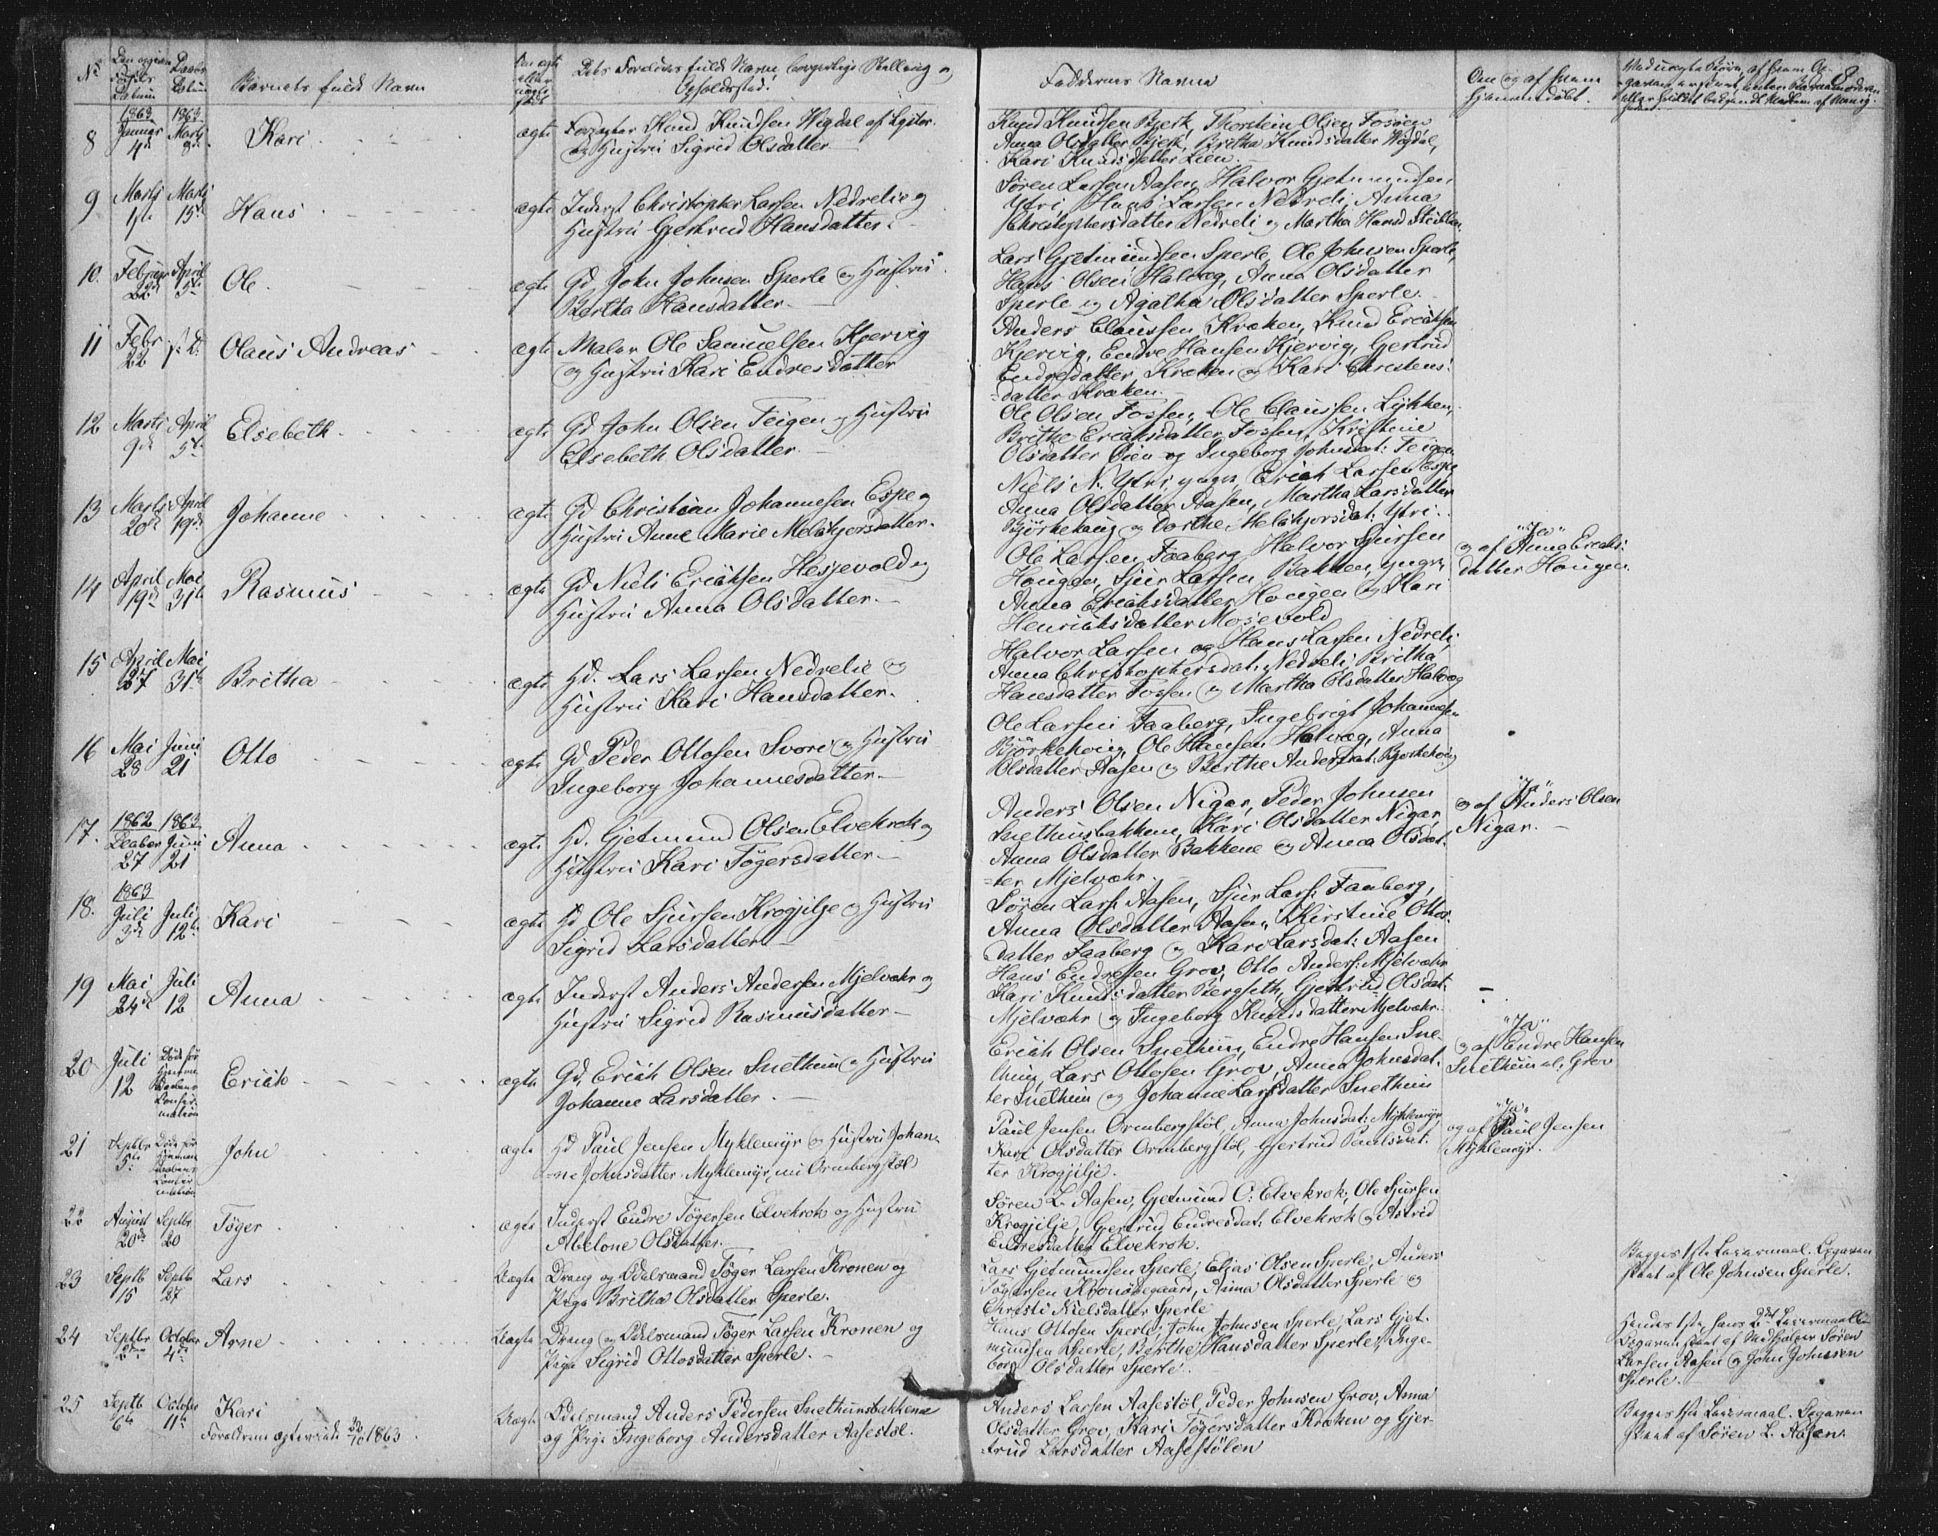 No
Barnets fulde Navn
Dets Forældres fulde Navn, borgerlige Stilling og
Opholdssted.
Faddernes Navne
Om og af hvem
hjemmedøbt.
8
8
1863 Januar 4de
1863 Marts 8de
Kari
ægte
Knud Knudsen Wigdal af Lyster
og Hustru Sigrid Olsdatter
Knud Knudsen Bjerk, Thorstein Olsen Fosøen
Anna Olsdatter Bjerk, Britha Knudsdatter Wigdal,
Kari Knudsdatter Lien.
9
Marts
Marts 15de
Hans
ægte
Inderst Christopher Larsen Nedrelie og
Hustru Gjertrud Hansdatter.
Søren Larsen Aasen, Halvor Gjetmundsen
Ytri, Hans Larsen Nedreli, Anna
Christophersdatter Nedreli og Martha Hansd
10.
Februar 22de
April 5te
Ole
ægte
Gd John Johnsen Sperle og Hustru
Bertha Hansdatter
Lars Gjetmundsen Sperle, Ole Johnsen Sperle,
Hans Olsen Halvæg, Anna Olsdatter
Sperle og Agatha Olsdatter Sperle.
11
Febr 22
s. D.
Olaus Andreas
ægte
Maler Ole Samuelsen Kjervig
og Hustru Kari Endresdatter
Anders Claussen Kræken, Knud Ericksen
Kjervig, Endre Hansen Kjervig, Gjertrud
Endresdatter Kræken og Kari Christens-
datter Kræken.
12
Marts 9de
April 5te
Elsebeth
ægte
Gd John Olsen Teigen og Hustru
Elsebeth Olsdatter
Ole Olsen Fossen, Ole Claussen Lykken,
Brithe Ericksdatter Fossen, Kristine
Olsdatter Øien og Ingeborg Johnsdat: Teigen
13
Marts 20de
April 19de
Johanne
ægte
Gd Christian Johannesen Espe og
Hustru Anne Marie Melchjorsdatter.
Niels N. Ytri, yngre, Erick Larsen Espe
Anna Olsdatter Aasen, Martha Larsdatter
Bjørkehoug og Dorthe Melchjorsdat: Ytri.
14
April 19de
Mai 31te
Rasmus
ægte
Gd Niels Ericksen Hesjevold og
Hustru Anna Olsdatter.
Ole Larsen Faaberg, Halvor Sjursen
Hougen, Sjur Larsen Bakken, yngre,
Anna Ericksdatter Hougen og Kari
Henricksdatter Mosevold
"Ja"
og af Anna Ericks-
datter Hougen
15
April 27
Mai 31te
Britha
ægte
Gd. Lars Larsen Nedrelie og
Hustru Kari Hansdatter.
Halvor Larsen og Hans Larsen Nedreli,
Anna Christophersdat: Nedreli, Britha
Hansdatter Fossen og Martha Olsdatter Halvæg
16
Mai 28
Juni 21
Otto
ægte
Gd Peder Ottosen Svori og Hustru
Ingeborg Johannesdatter.
Ole Larsen Faaberg, Ingebrigt Johannesen
Bjørkehoug, Ole Hansen Halvæg, Anna
Olsdatter Aasen og Berthe Andersdat: Bjørkehoug
17.
1862 27
1863 Juni 21
Anna
ægte
Gd. Gjetmund Olsen Elvekrok og
Hustru Kari Tøgersdatter.
Anders Olsen Nigar, Peder Johnsen
Snethunsbakkene, Kari Olsdatter Nigar
Anna Olsdatter Bakkene og Anna Olsdat-
ter Mjelvæhr.
"Ja"
og af Anders Olsen
Nigar.
18.
1863 Juli 3de
Juli 12te
Kari
ægte
Gd Ole Sjursen Krogjilje og Hustru
Sigrid Larsdatter
Søren Lars: Aasen, Sjur Lars: Faaberg,
Anna Olsdatter Aasen, Kirstine Ottos-
datter Faaberg og Kari Larsdat: Aasen
19
Mai 24de
Juli 12
Anna
ægte
Inderst Anders Andersen Mjelvæhr og
Hustru Sigrid Rasmusdatter
Hans Endresen Grov, Otto Anders: Mjelvæhr
Kari Knudsdatter Bergseth, Gjertrud Olsdat:
Mjelvæhr og Ingeborg Knudsdatter Mjelvæhr.
20
Juli 12
Død før
Hjemme
Daabens
Confir-
mation
Erick
ægte
Gd. Erick Olsen Snethun og Hustru
Johanne Larsdatter.
Erick Olsen Snethun, Endre Hansen Sne-
thun, Lars Ottosen Grov, Anna Johnsdat-
ter Snethun og Johanne Larsdatter Snethun
"Ja"
og af Endre Hansen
Snethun al: Grov
21
Septbr 5te
Død før
Hjemme
Daabens
Confir-
mation
John
ægte
Gd Paul Jensen Myklemyr og Hustru Johan-
ne Johnsdatter Myklemyr, nu Ormbergstøl
Paul Jensen Ormbergstøl, Anna Johnsdat: Myklemyr
Kari Olsdatter Ormbergstøl, Gjertrud Paulsdat-
ter Krogjilje
"Ja"
og af Paul Jensen
Myklemyr.
22
August 20de
Septbr 20
Tøger
ægte
Inderst Endre Tøgersen Elvekrok og Hustru
Abelone Olsdatter.
Søren L. Aasen, Gjetmund O: Elvekrok, Ole Sjursen
Krogjilje, Gjertrud Endresdat: Elvekrok og Astrid
Endresdatter Elvekrok.
23
Septb 15
Septb 27
Lars
Uægte
Dreng og Odelsmand Tøger Larsen Kronen og
Pige Britha Olsdatter Sperle.
Lars Gjetmundsen Sperle, Elias Olsen Sperle, Anders
Tøgersen Kronødegaard, Anna Olsdatter Sperle og
Christi Nielsdatter Sperle
Begges 1ste Leiermaal. Opgaven
skeet af Ole Johnsen Sperle.
24
Septbr
October 4de
Arne
Uægte
Dreng og Odelsmand Tøger Larsen Kronen og
Pige Sigrid Ottosdatter Sperle.
Hans Ottosen Sperle, John Johnsen Sperle, Lars Gjet-
mundsen Sperle, Berthe Hansdatter Sperle, Inge-
borg Olsdatter Sperle.
Hendes 1ste, hans 2det Leiermaal.
Opgaven skeet af Medhjelper Søren
Larsen Aasen og John Johnsen
Sperle.
25
Septb 6te
October 11te
Kari
Forældrene ægteviede 1863.
Uægte
Odelsmand Anders Pedersen Snethunsbakkene
og Pige Ingeborg Andersdatter Aasestøl.
Anders Larsen Aasestøl, Peder Johnsen Grov, Anna
Olsdatter Grov, Kari Tøgersdatter Kræken og Gjer-
trud Larsdatter Aasestølen
Begges 1ste Leiermaal. Opgaven
skeet af Søren L. Aasen.